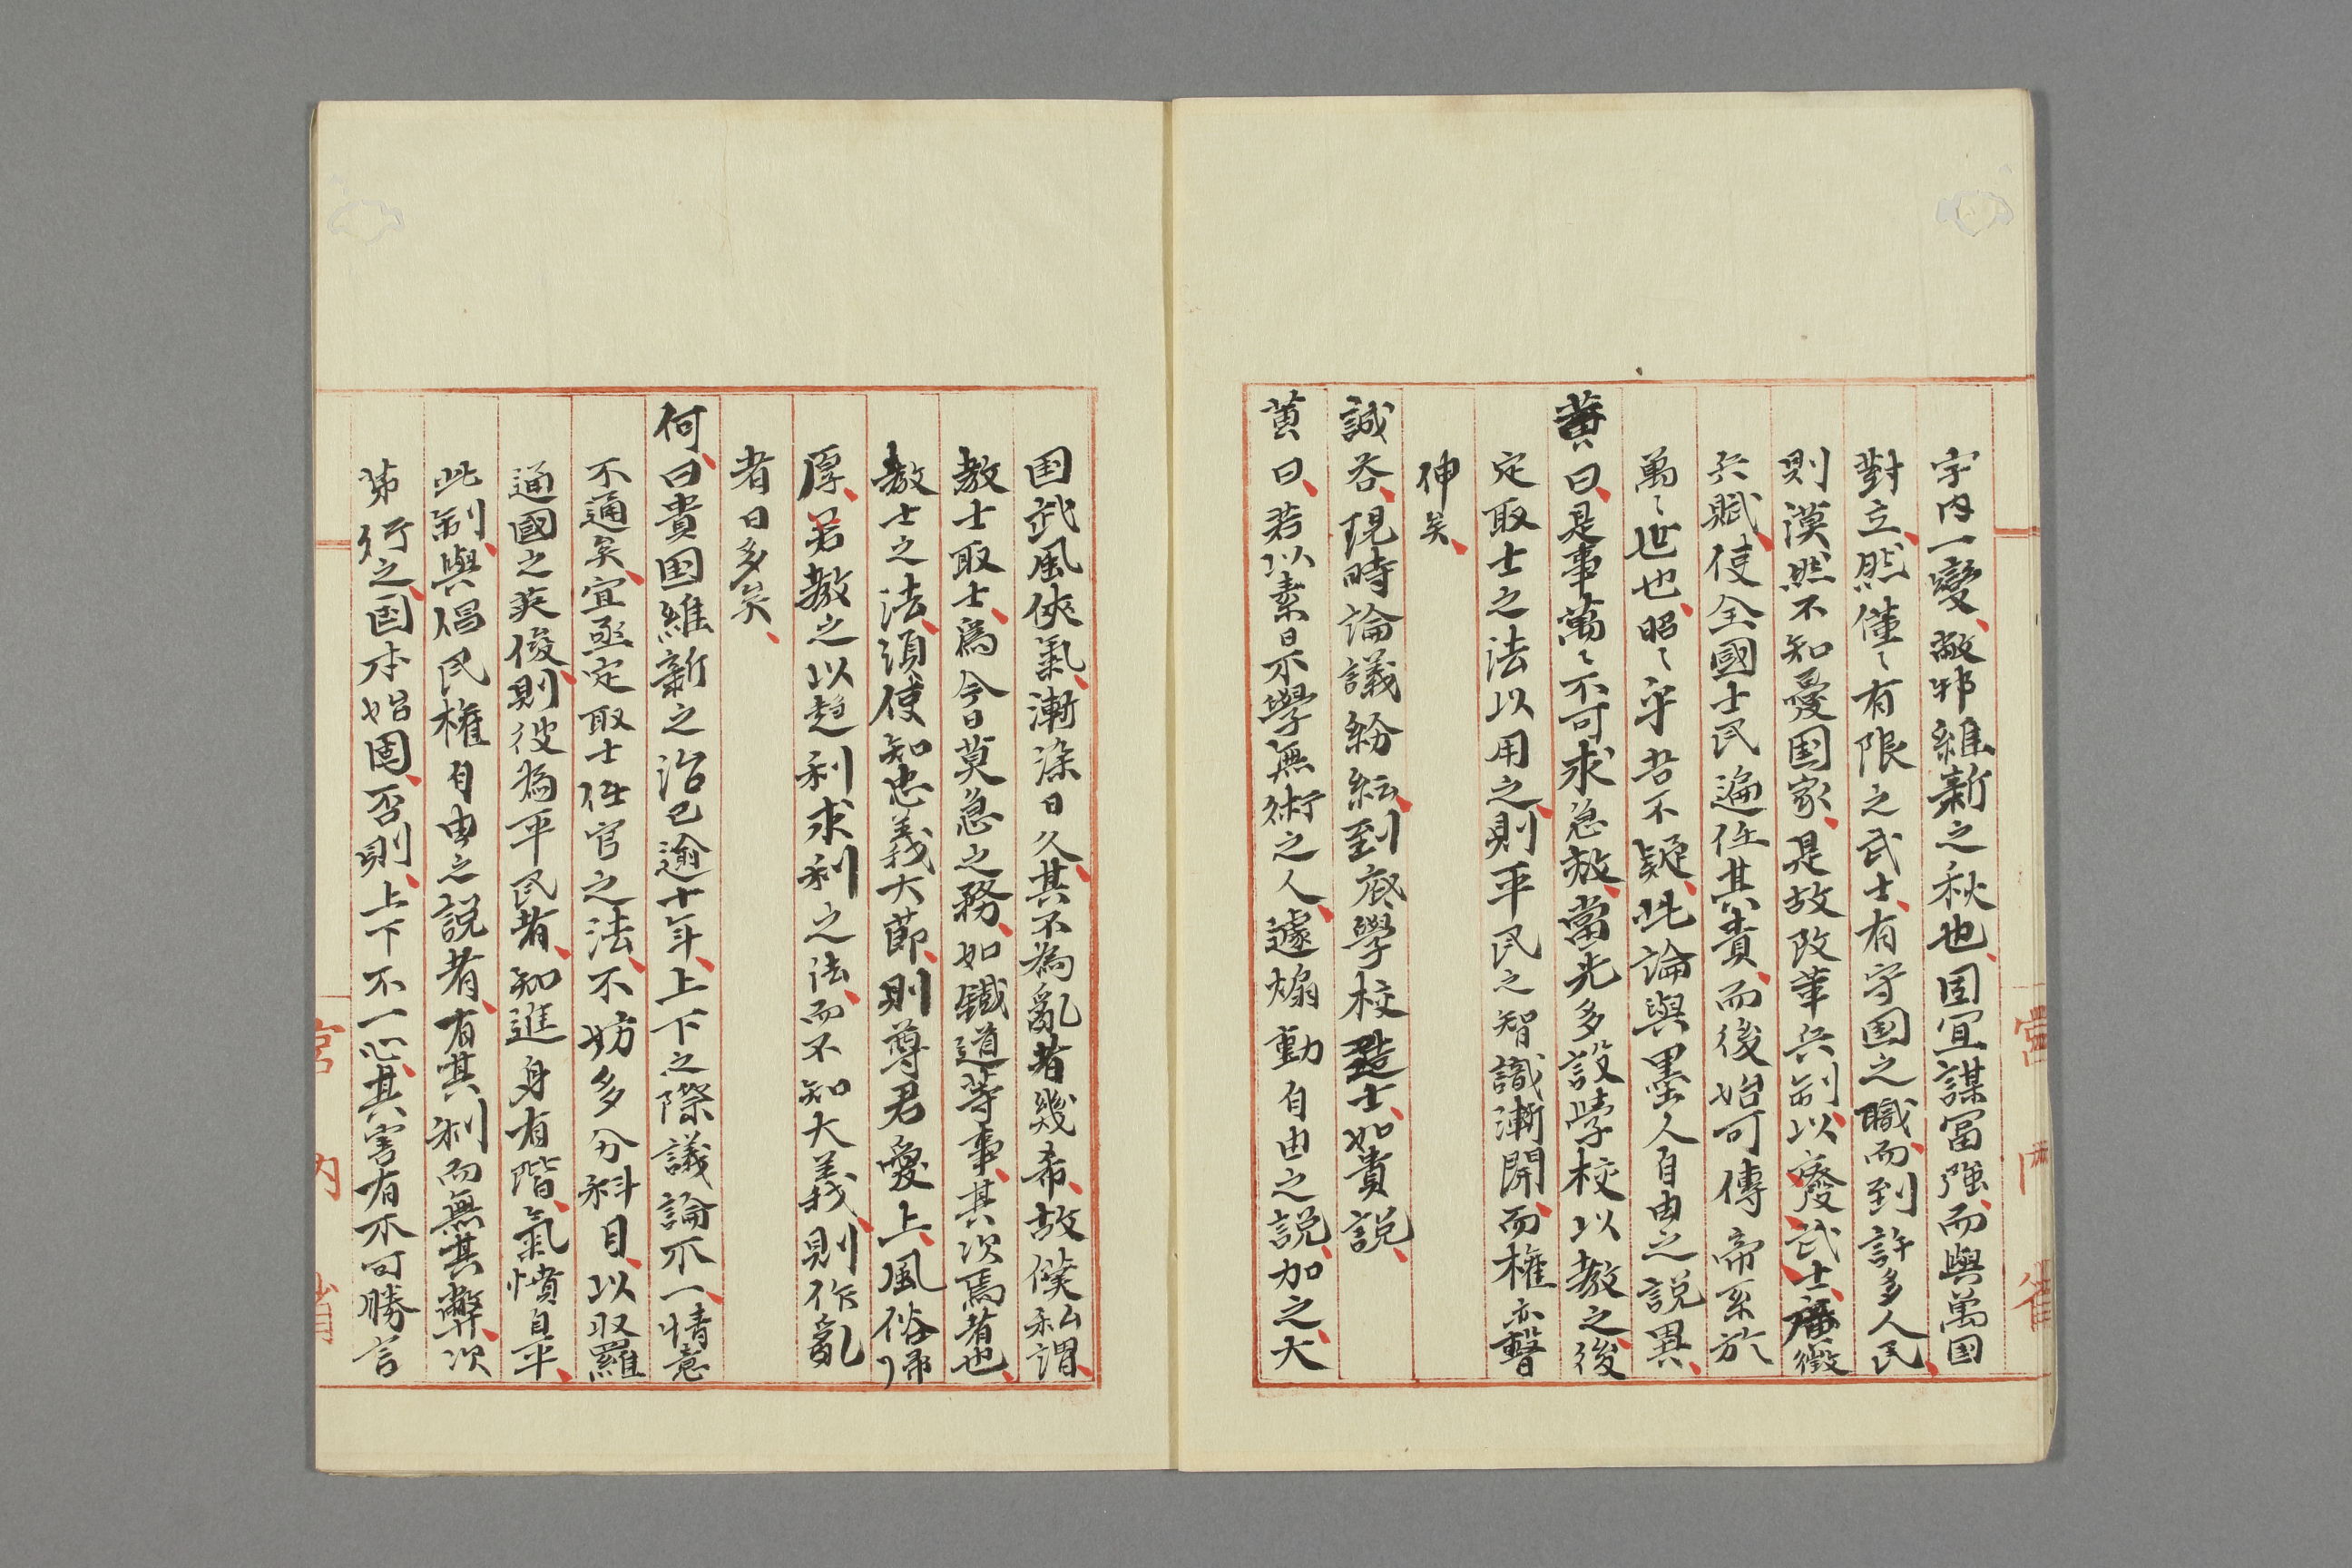 宇内一變、敝邦維新之秋也、固宜謀冨強、而與萬国
對立、然僅〻有限之武士、有守国之職、而到許多人民、
則漠然不知憂国家、是故改革兵制、以廢武士、廣徴
兵賦、使全國士民遍任其責、而後始可傳帝系於
萬〻世也、昭〻乎吾不疑、此論與墨人自由之説異、
黄曰、是事萬〻不可求急效、當先多設學校以教之、後
定取士之法以用之、則平民之智識漸開、而權亦暗
伸矣、
誠答、現時論議紛紜、到底學校造士、如貴説、
黄曰、若以素日不學無術之人、遽煽動自由之説、加之、大
国武風俠氣、漸染日久、其不為亂者幾希、故僕私謂、
教士取士、爲今日莫急之務、如鐵道等事、其次焉者也、
教士之法、須使知忠義大節、則尊君愛上、風俗帰
厚、若教之以趋利求利之法、而不知大義、則作亂
者日多矣、
何曰、貴国維新之治已逾十年、上下之際議論不一、情意
不通矣、宜亟定取士任官之法、不妨多分科目、以収羅
通國之英俊、則彼為平民者、知進身有階、氣憤自平、
此制與倡民權自由之説者、有其利而無其弊、次
第行之、国本始固、否則、上下不一心、其害有不可勝言
宮内省
宮内省